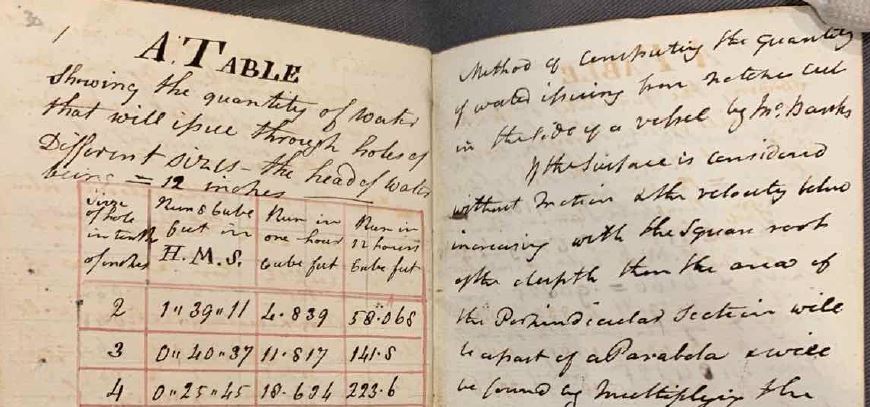 1
A. TABLE
Showing the quantity of water
that will issue through holes of
Different sizes - the head of water
being = 12 inches
Size of hole in tenths of inches | Runs 8 Cube feet in H. M. S. | Run in one hour Cube feet | Run in 12 hours Cube feet
2 | 1 " 39 " 11 | 4.839 | 58.068
3 | 0 " 40 " 37 | 11.817 | 141.8
4 | 0 " 25 " 45 | 18.634 | 223.6
Method of Computing the Quantity
of water issuing from notches cut
in the side of a vessel by Mr. Banks
If the Surface is considered
without motion & the velocity below
increasing with the Square root
of the depth then the area of
the Perpindicular Section will
be a part of a Parabola & will
be found by multiplying the